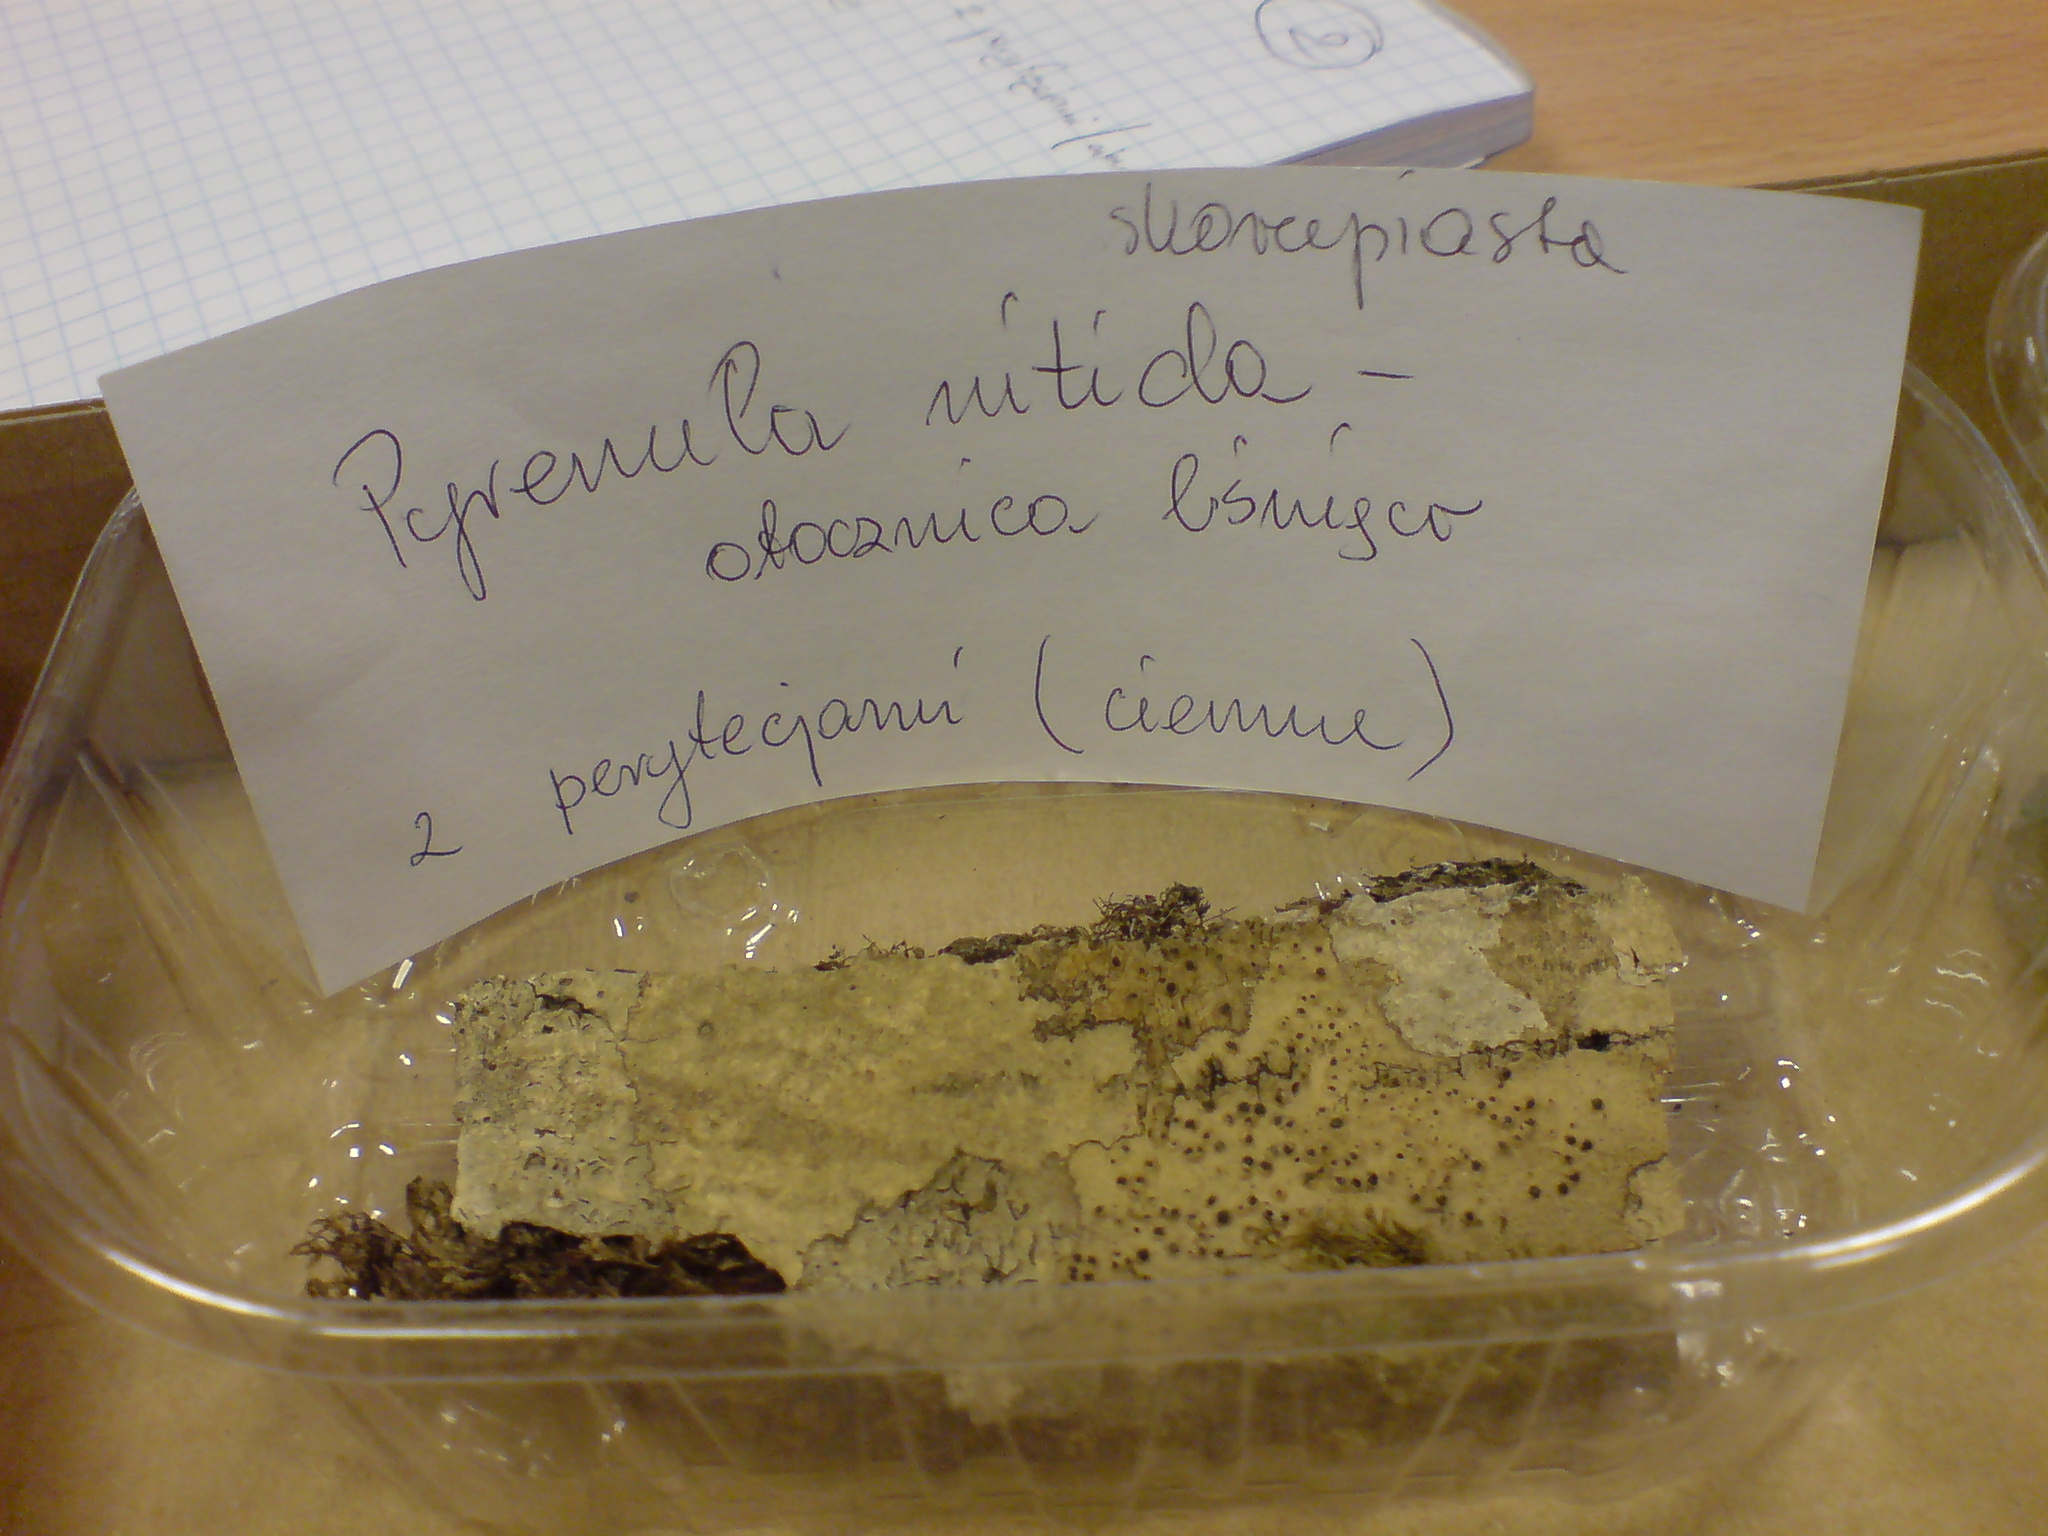 skorupiasta
Pyrenula nitida -
otocznica lśniąca
z perytecjami (ciemne)
2